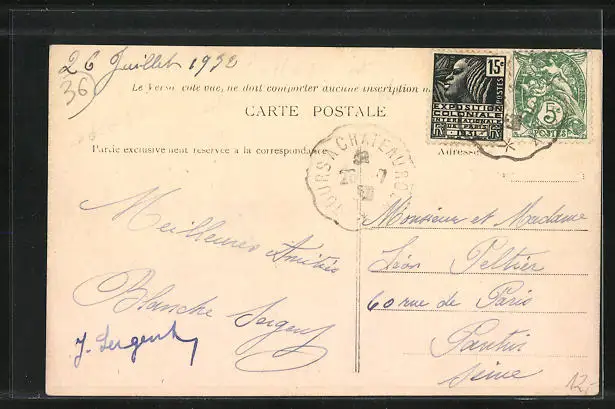 26 Juillet 1932
36
Le Verso côté vue, ne doit comporter aucune inscription
CARTE POSTALE
Partie exclusivement réservée à la correspondance
Adresse
15c
POSTES
EXPOSITION
COLONIALE
INTERNATIONALE
DE PARIS
1931
RF RF
5c
POSTES
TOURS A CHATEAUROUX
26 - 7
32
Meilleures Amitiés
Blanche Sergent
J. Sergent
Monsieur et Madame
Léon Peltier
60 rue de Paris
Pantin
Seine
12,-